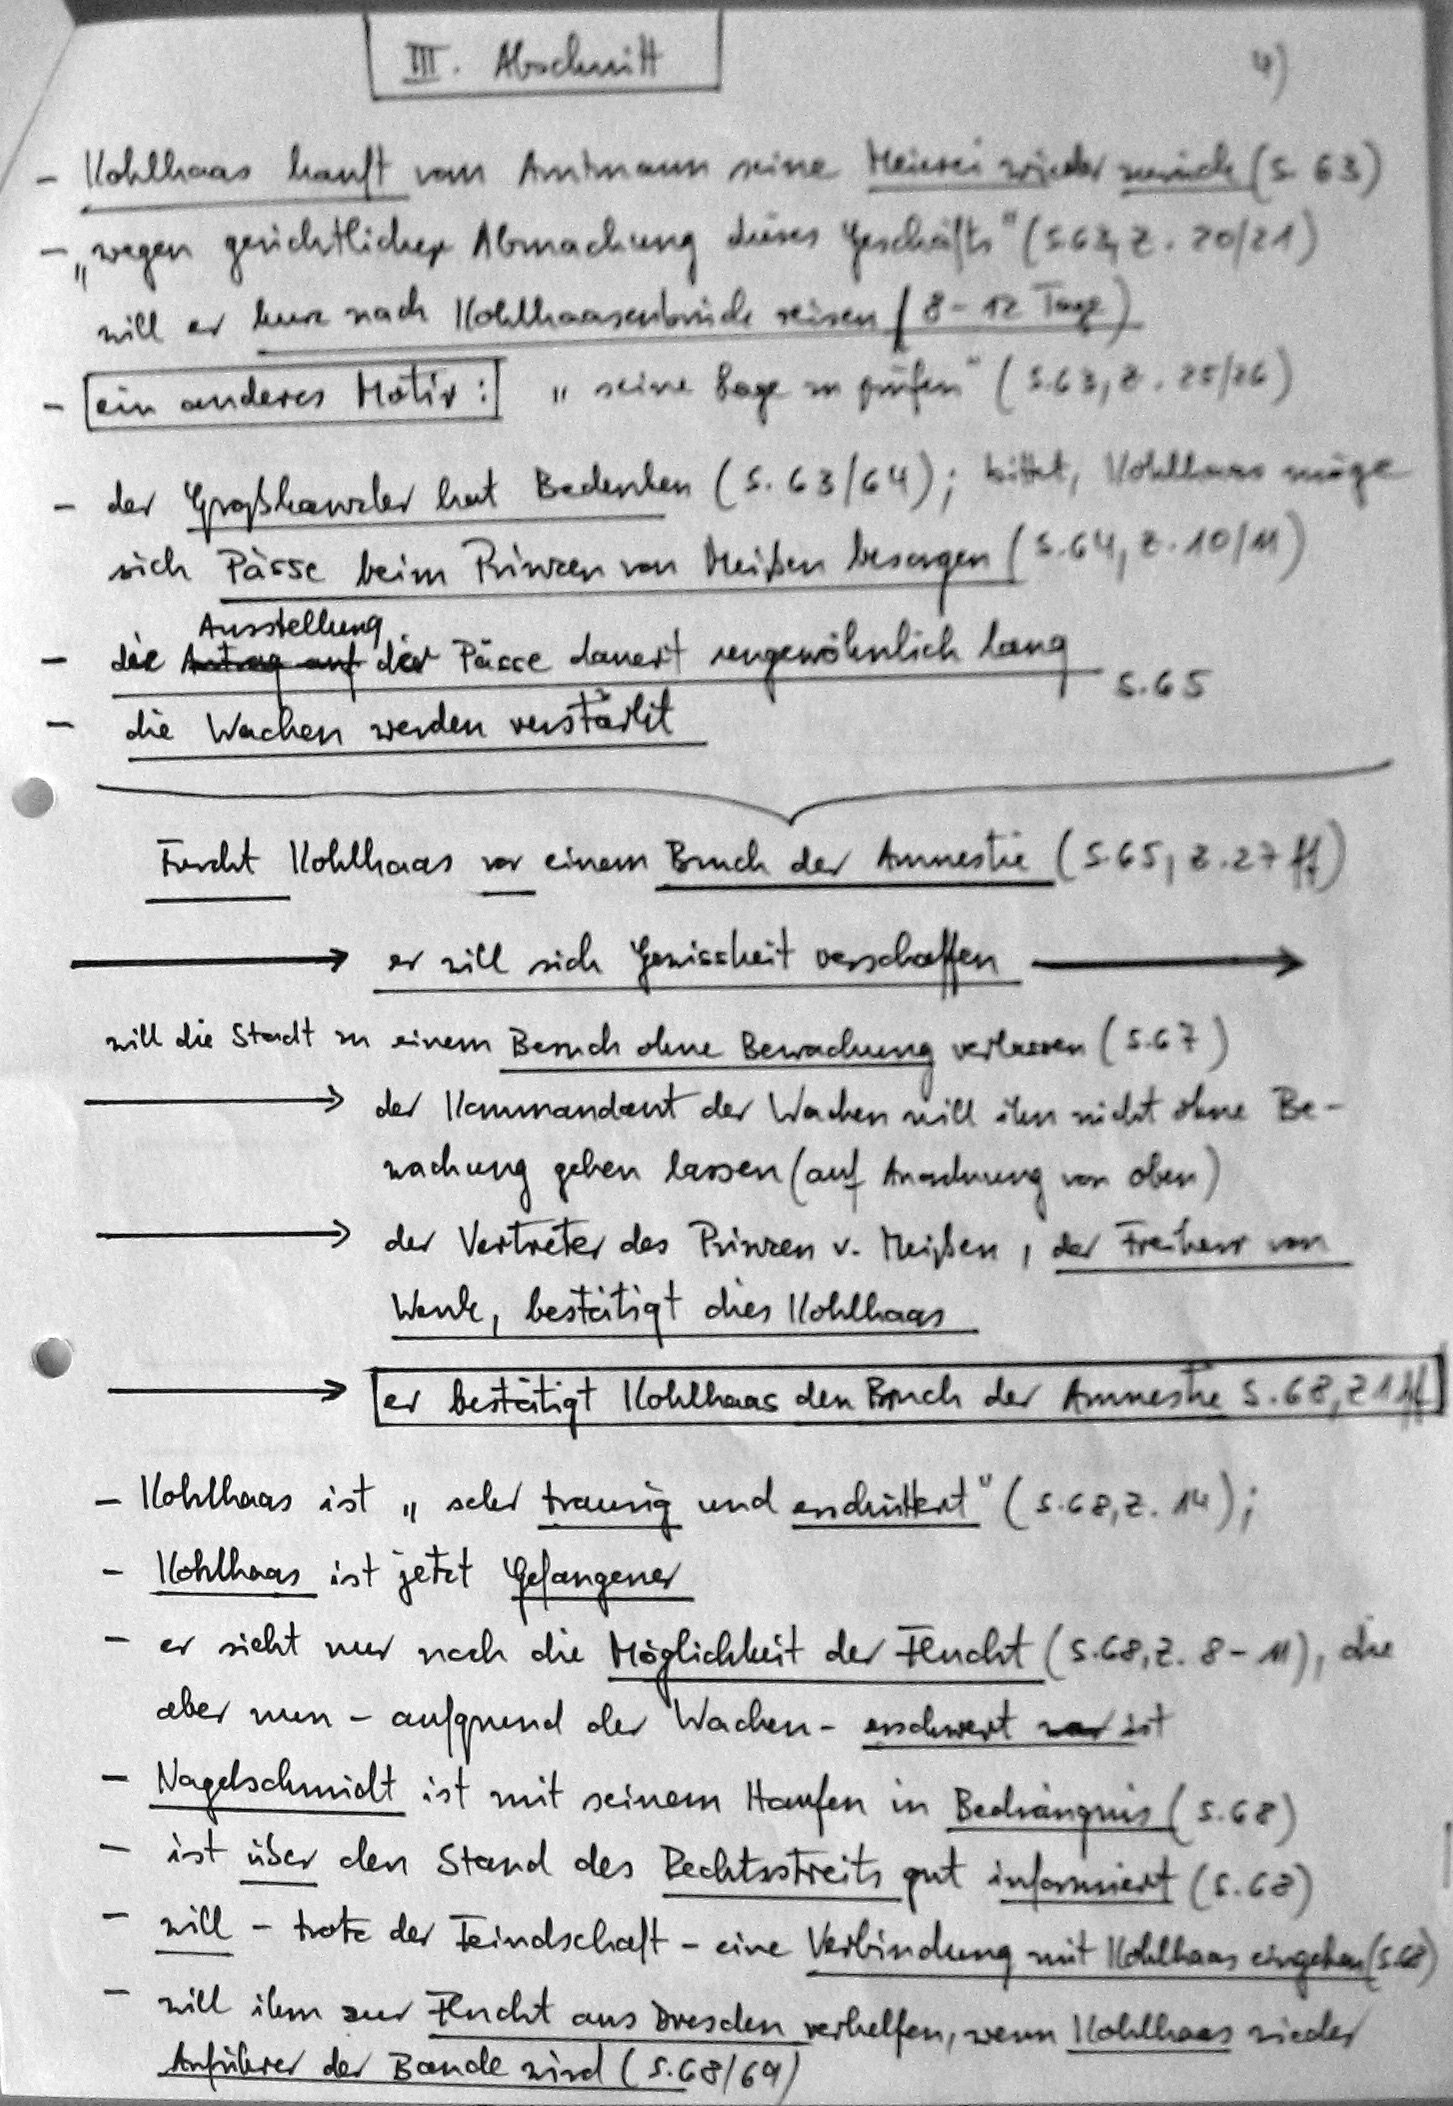 III. Abschnitt
4)
- Kohlhaas kauft vom Amtmann seine Meierei wieder zurück (S. 63)
- „wegen gerichtlicher Abmachung dieses Geschäfts" (S.63, Z. 20/21)
will er kurz nach Kohlhaasenbrück reisen (8-12 Tage)
- ein anderes Motiv: „seine Lage zu prüfen" (S.63, Z. 25/26)
- der Großkanzler hat Bedenken (S. 63/64); bittet, Kohlhaas möge
sich Pässe beim Prinzen von Meißen besorgen (S.64, Z.10/11)
Ausstellung
- die Antrag auf der Pässe dauert ungewöhnlich lang
S.65
- die Wachen werden verstärkt
Furcht Kohlhaas vor einem Bruch der Amnestie (S.65, Z.27 ff)
→ er will sich Gewissheit verschaffen →
will die Stadt zu einem Besuch ohne Bewachung verlassen (S.67)
→ der Kommandant der Wachen will ihn nicht ohne Be-
wachung gehen lassen (auf Anordnung von oben)
→ der Vertreter des Prinzen v. Meißen, der Freiherr von
Wenk, bestätigt dies Kohlhaas
→ er bestätigt Kohlhaas den Bruch der Amnestie S.68, Z 1 ff
- Kohlhaas ist „sehr traurig und erschüttert" (S.68, Z. 14);
- Kohlhaas ist jetzt Gefangener
- er sieht nur noch die Möglichkeit der Flucht (S.68, Z. 8-11), die
aber nun - aufgrund der Wachen - erschwert war ist
- Nagelschmidt ist mit seinem Haufen in Bedrängnis (S.68)
- ist über den Stand des Rechtsstreits gut informiert (S.68)
- will - trotz der Feindschaft - eine Verbindung mit Kohlhaas eingehen (S.68)
- will ihm zur Flucht aus Dresden verhelfen, wenn Kohlhaas wieder
Anführer der Bande wird (S.68/69)